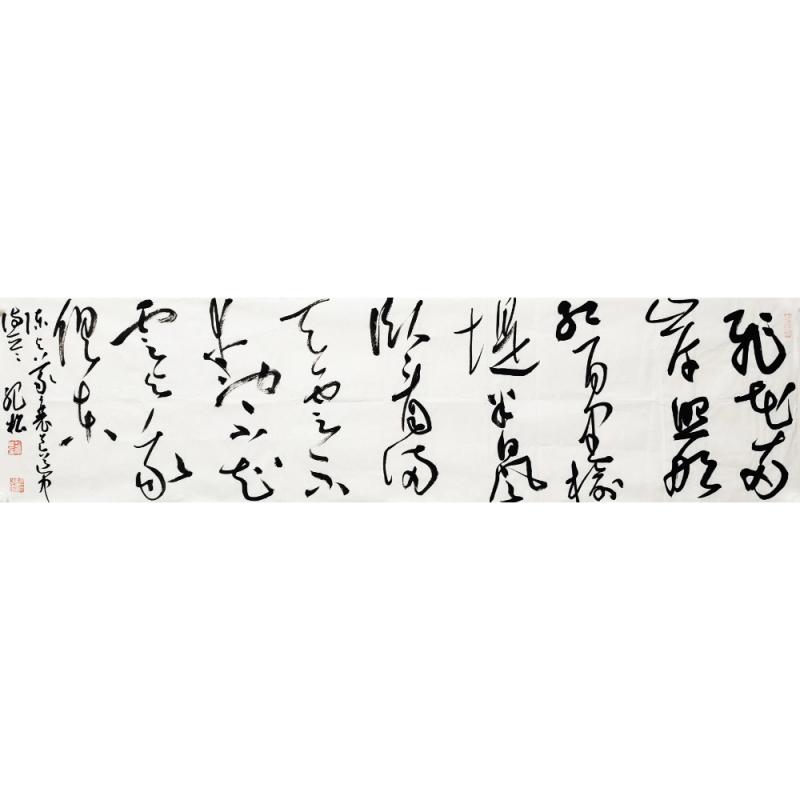 飞花两
岸照船
红百里榆
堤半日风
卧看满
天云不
动不知
云与我
俱东
陈与义襄邑道中
诗一首